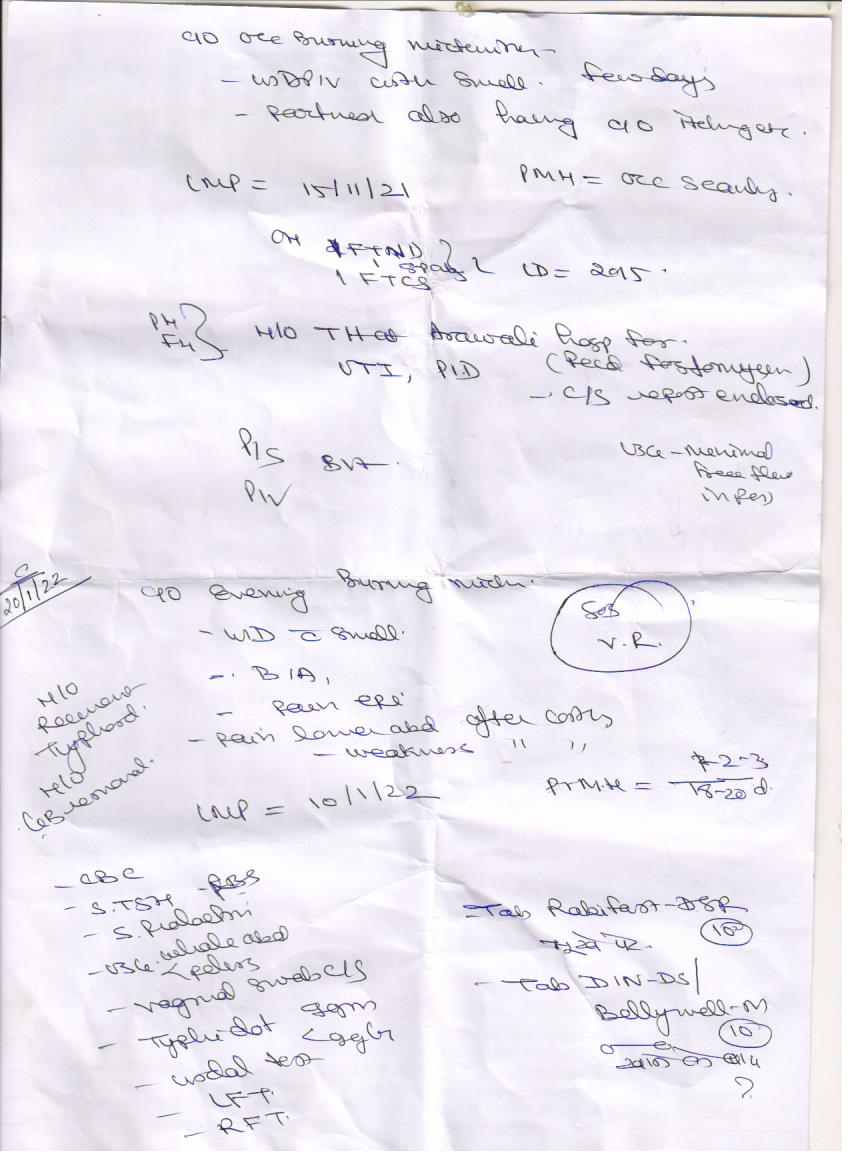 c/o occ Burning micturition
- WDPIV with smell. few days
- Partner also having c/o itching etc.
LMP = 15/11/21 PMH = occ scanty.
OH 1 FTND
1 FTCS
LD = 2015.
PH
FH
H/O T/t at Arawali hosp for
UTI, PID (Recd fosfomycin)
- C/S report enclosed.
P/S BV+
P/V
USG - minimal
free flow
in Pers
20/1/22
c/o Evening Burning mictu.
- WD c smell.
- B/A,
- Pain epi
- Pain lower abd after coitus
- weakness " "
SOS
V.R.
H/O
Recurrent
Typhoid.
H/O
GB removal.
LMP = 10/1/22
Pr M.H = 2-3
18-20 d.
- CBC
- S.TSH - RBS
- S. Prolactin
- USG. whole abd
< pelvis
- vaginal swab C/S
- Typhidot < IgM
IgG
- widal test
- LFT.
- RFT.
- Tab Rabifast-DSR
10
- Tab DIN-DS/
Bellywell-M
10
?